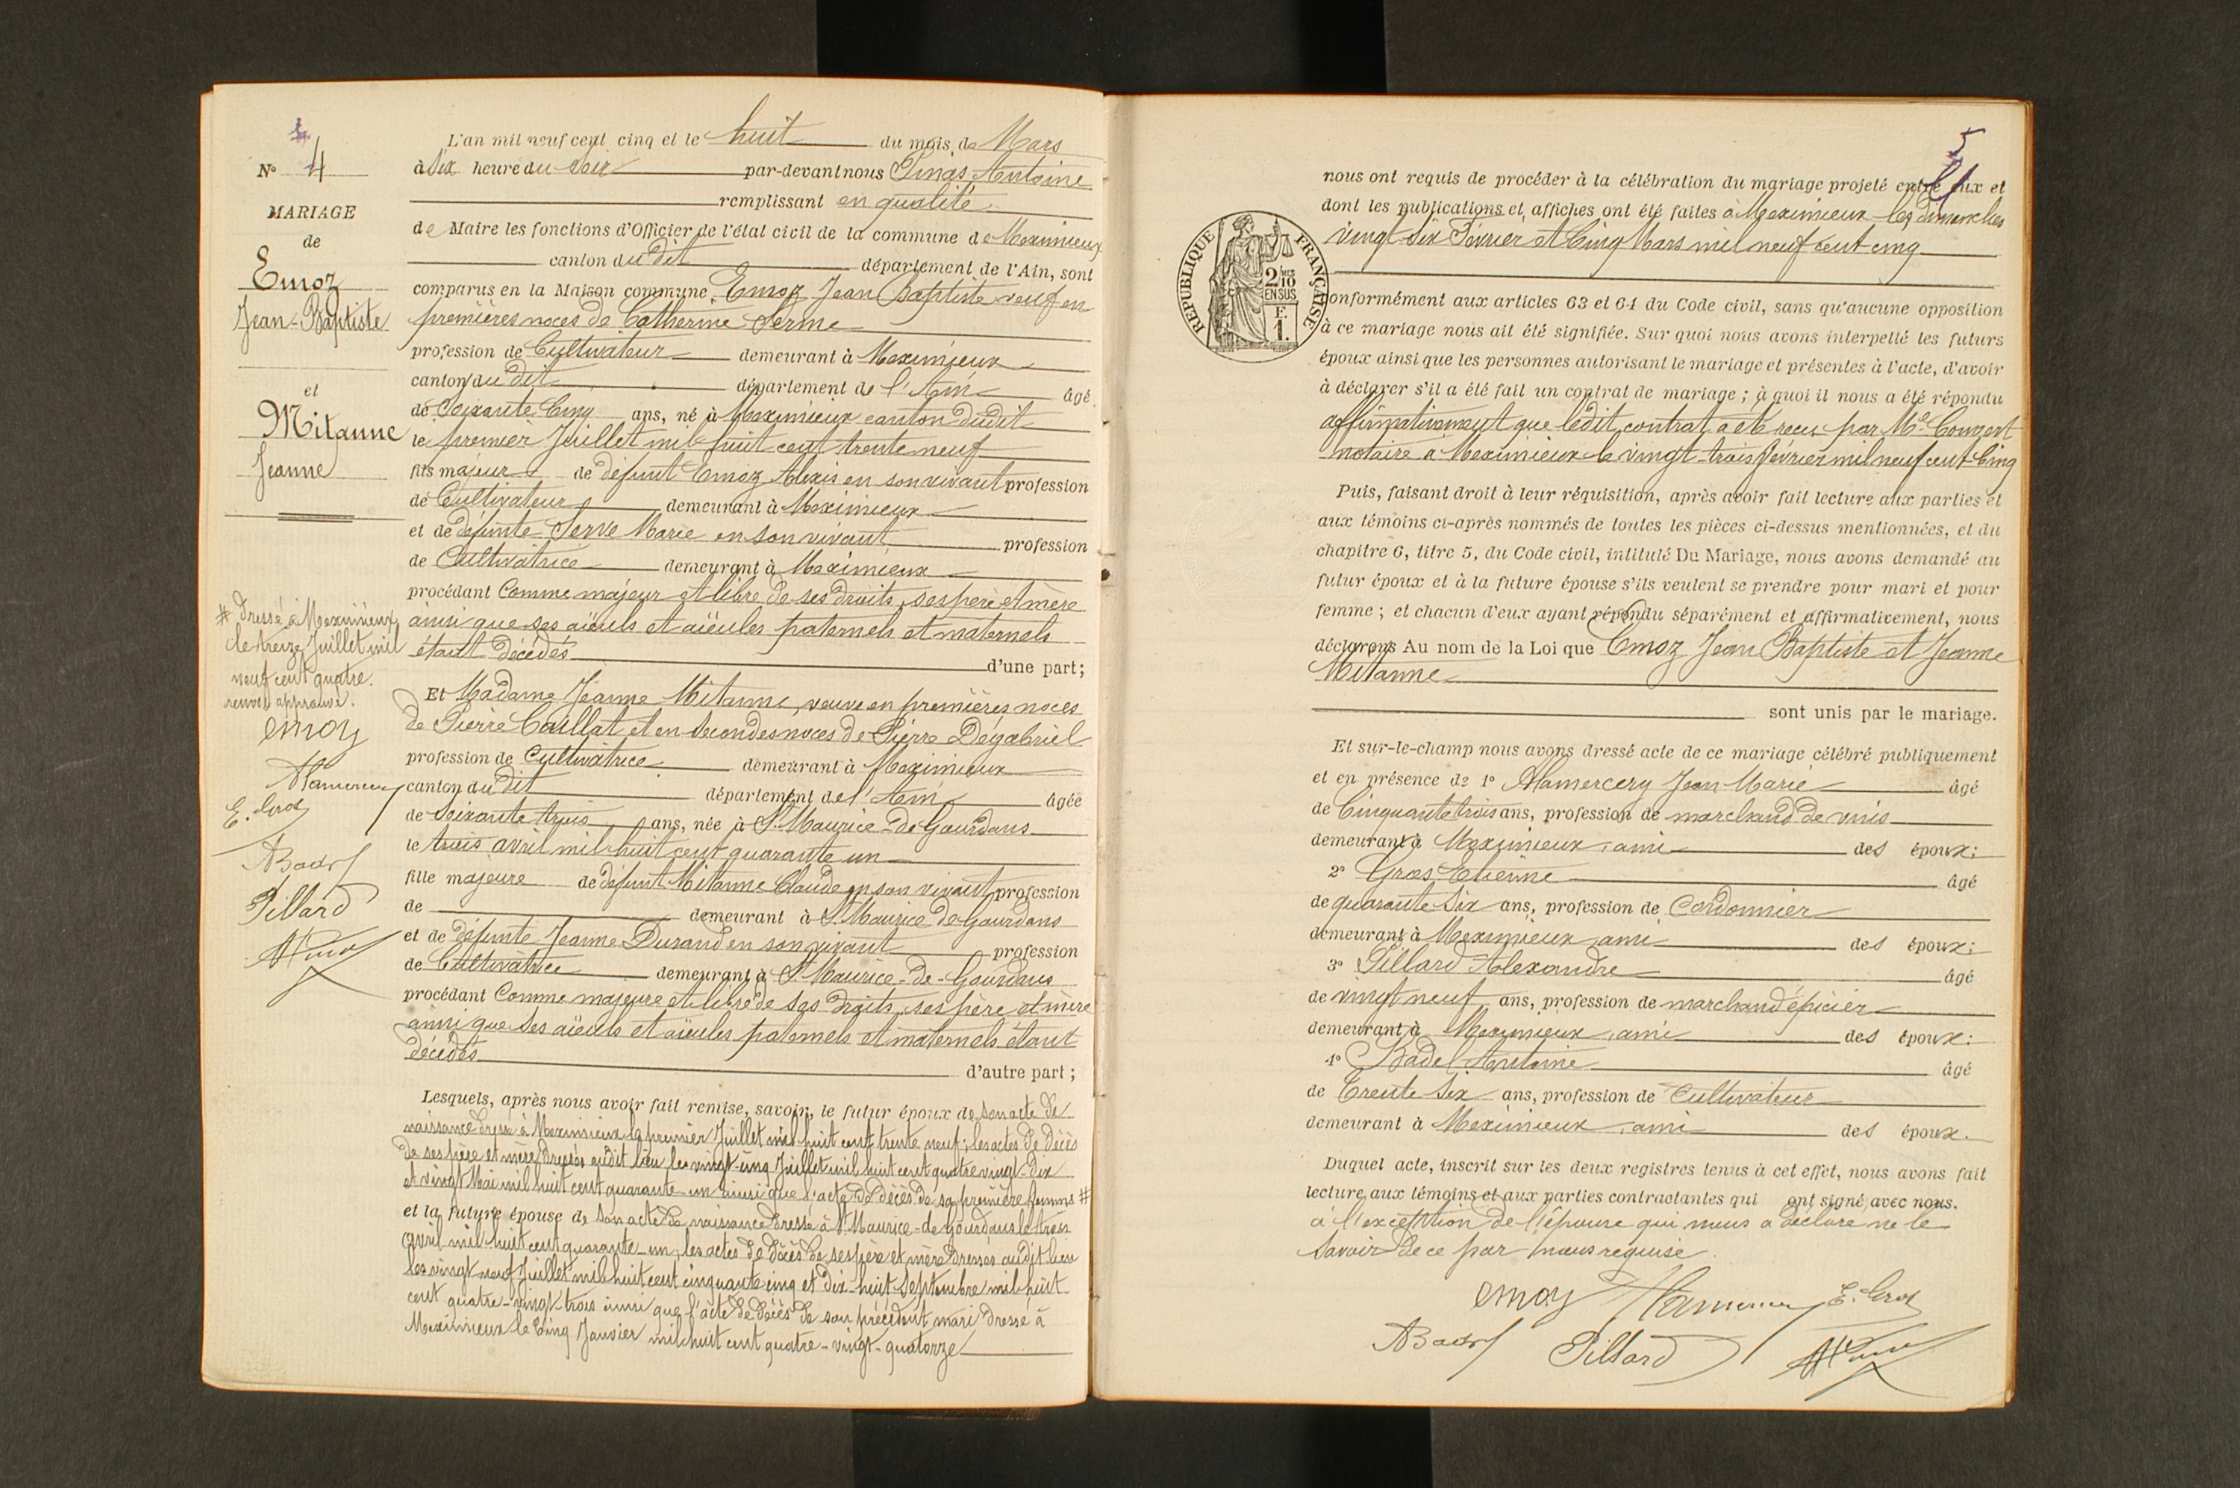 4
N° 4
MARIAGE
de
Emoz
Jean-Baptiste
et
Mitanne
Jeanne
L'an mil neuf cent cinq et le huit du mois de Mars
à six heure du soir par-devant nous Pinas Antoine
remplissant en qualité
de Maire les fonctions d'Officier de l'état civil de la commune de Meximieux
canton du dit département de l'Ain, sont
comparus en la Maison commune, Emoz Jean Baptiste veuf en
premières noces de Catherine Serme
profession de Cultivateur demeurant à Meximieux
canton du dit département de l'Ain âgé
de Soixante Cinq ans, né à Meximieux canton dudit
le premier Juillet mil huit cent trente neuf
fils majeur de défunt Emoz Alexis en son vivant profession
de Cultivateur demeurant à Meximieux
et de défunte Serve Marie en son vivant profession
de Cultivatrice demeurant à Meximieux
procédant Comme majeur et libre de ses droits, ses père et mère
ainsi que ses aïeuls et aïeules paternels et maternels
étant décédés d'une part;
# dressé à Meximieux
le treize Juillet mil
neuf cent quatre.
renvoi approuvé.
emoz
E. Gros
ABadel
Pillard
Et Madame Jeanne Mitanne, veuve en premières noces
de Pierre Caillat et en secondes noces de Pierre Dégabriel
profession de Cultivatrice demeurant à Meximieux
canton du dit département de l'Ain âgée
de Soixante trois ans, née à St Maurice-de-Gourdans
le trois avril mil huit cent quarante un
fille majeure de défunt Mitanne Claude en son vivant profession
de demeurant à St Maurice de Gourdans
et de défunte Jeanne Durand en son vivant profession
de Cultivatrice demeurant à St Maurice-de-Gourdans
procédant Comme majeure et libre de ses droits, ses père et mère
ainsi que ses aïeuls et aïeules paternels et maternels étant
décédés d'autre part;
Lesquels, après nous avoir fait remise, savoir, le futur époux de son acte de
naissance dressé à Meximieux le premier Juillet mil huit cent trente neuf; les actes de décès
de ses père et mère dressés au dit lieu les vingt-cinq Juillet mil huit cent quatre vingt-dix
et vingt Mai mil huit cent quarante-un ainsi que l'acte de décès de sa première femme #
et la future épouse de son acte de naissance dressé à St Maurice-de-Gourdans le trois
avril mil huit cent quarante-un, les actes de décès de ses père et mère dressés au dit lieu
les vingt neuf Juillet mil huit cent cinquante cinq et dix-huit Septembre mil huit
cent quatre-vingt-trois ainsi que l'acte de décès de son précédent mari dressé à
Meximieux le Cinq Janvier mil huit cent quatre-vingt-quatorze
5
nous ont requis de procéder à la célébration du mariage projeté entre eux et
dont les publications et affiches ont été faites à Meximieux les dimanches
vingt-six Février et Cinq Mars mil neuf cent cinq
RÉPUBLIQUE FRANÇAISE
2/10
EN SUS
F.
1.
conformément aux articles 63 et 64 du Code civil, sans qu'aucune opposition
à ce mariage nous ait été signifiée. Sur quoi nous avons interpellé les futurs
époux ainsi que les personnes autorisant le mariage et présentes à l'acte, d'avoir
à déclarer s'il a été fait un contrat de mariage; à quoi il nous a été répondu
affirmativement que ledit contrat a été reçu par Me Convert
notaire à Meximieux le vingt-trois février mil neuf cent Cinq
Puis, faisant droit à leur réquisition, après avoir fait lecture aux parties et
aux témoins ci-après nommés de toutes les pièces ci-dessus mentionnées, et du
chapitre 6, titre 5, du Code civil, intitulé Du Mariage, nous avons demandé au
futur époux et à la future épouse s'ils veulent se prendre pour mari et pour
femme; et chacun d'eux ayant répondu séparément et affirmativement, nous
déclarons Au nom de la Loi que Emoz Jean Baptiste et Jeanne
Mitanne
sont unis par le mariage.
Et sur-le-champ nous avons dressé acte de ce mariage célébré publiquement
et en présence de 1° Mamercery Jean Marie âgé
de Cinquante trois ans, profession de marchand de vins
demeurant à Meximieux, ami des époux;
2° Gros Etienne âgé
de quarante Six ans, profession de Cordonnier
demeurant à Meximieux, ami des époux;
3° Pillard Alexandre âgé
de vingt neuf ans, profession de marchand épicier
demeurant à Meximieux, ami des époux:
4° Badel Antoine âgé
de Trente Six ans, profession de Cultivateur
demeurant à Meximieux, ami des époux.
Duquel acte, inscrit sur les deux registres tenus à cet effet, nous avons fait
lecture aux témoins et aux parties contractantes qui ont signé avec nous.
à l'exception de l'épouse qui nous a déclaré ne le
savoir de ce par nous requise.
emoz E. Gros
ABadel Pillard